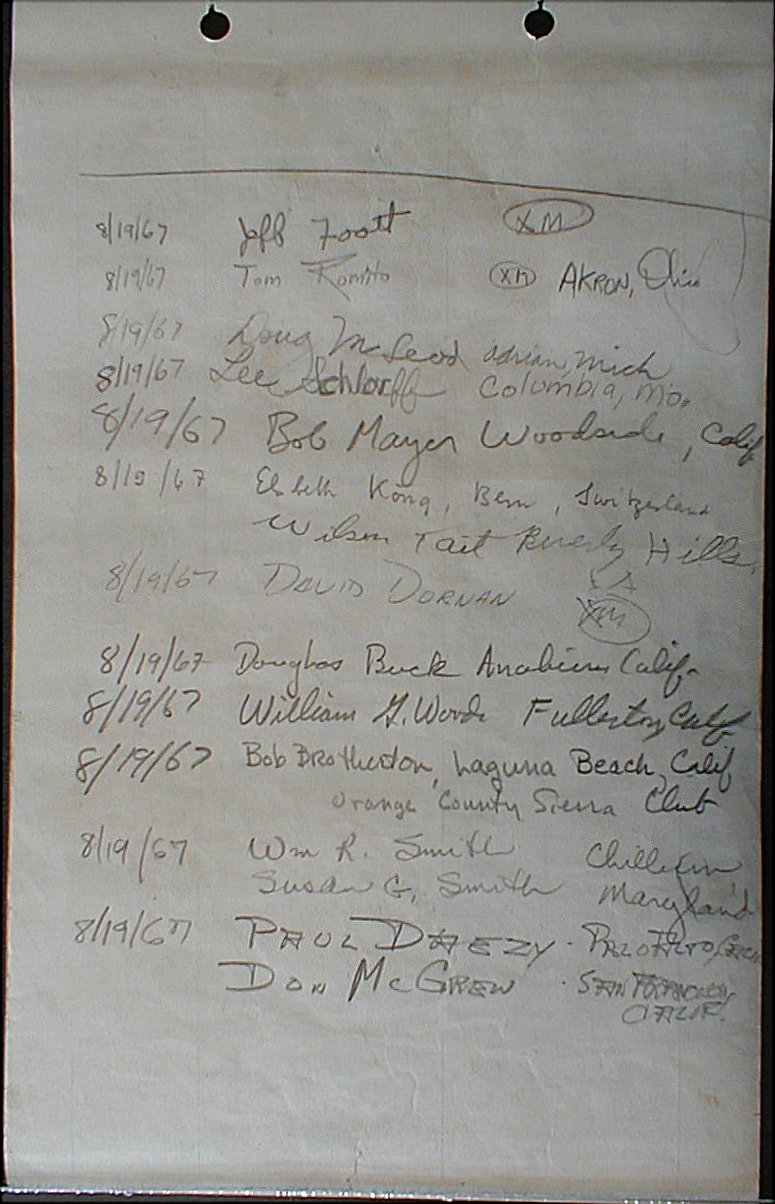 8/19/67 Jeff Foott XM
8/19/67 Tom XM AKRON, Ohio
8/19/67 Doug McLeod Adrian, Mich
8/19/67 Lee Schlorff Columbia, Mo.
8/19/67 Bob Mayer Woodside, Calif
8/19/67 Elsbeth König, Bern, Switzerland
Wilson Tait Beverly Hills,
8/19/67 DAVID DORNAN XM
8/19/67 Douglas Buck Anaheim Calif.
8/19/67 William G. Woods Fullerton, Calif
8/19/67 Bob Brotherton, Laguna Beach, Calif
Orange County Sierra Club
8/19/67 Wm R. Smith
Susan G. Smith Maryland
8/19/67 PAUL - PALO ALTO,
DON McGREW - SAN
CALIF.